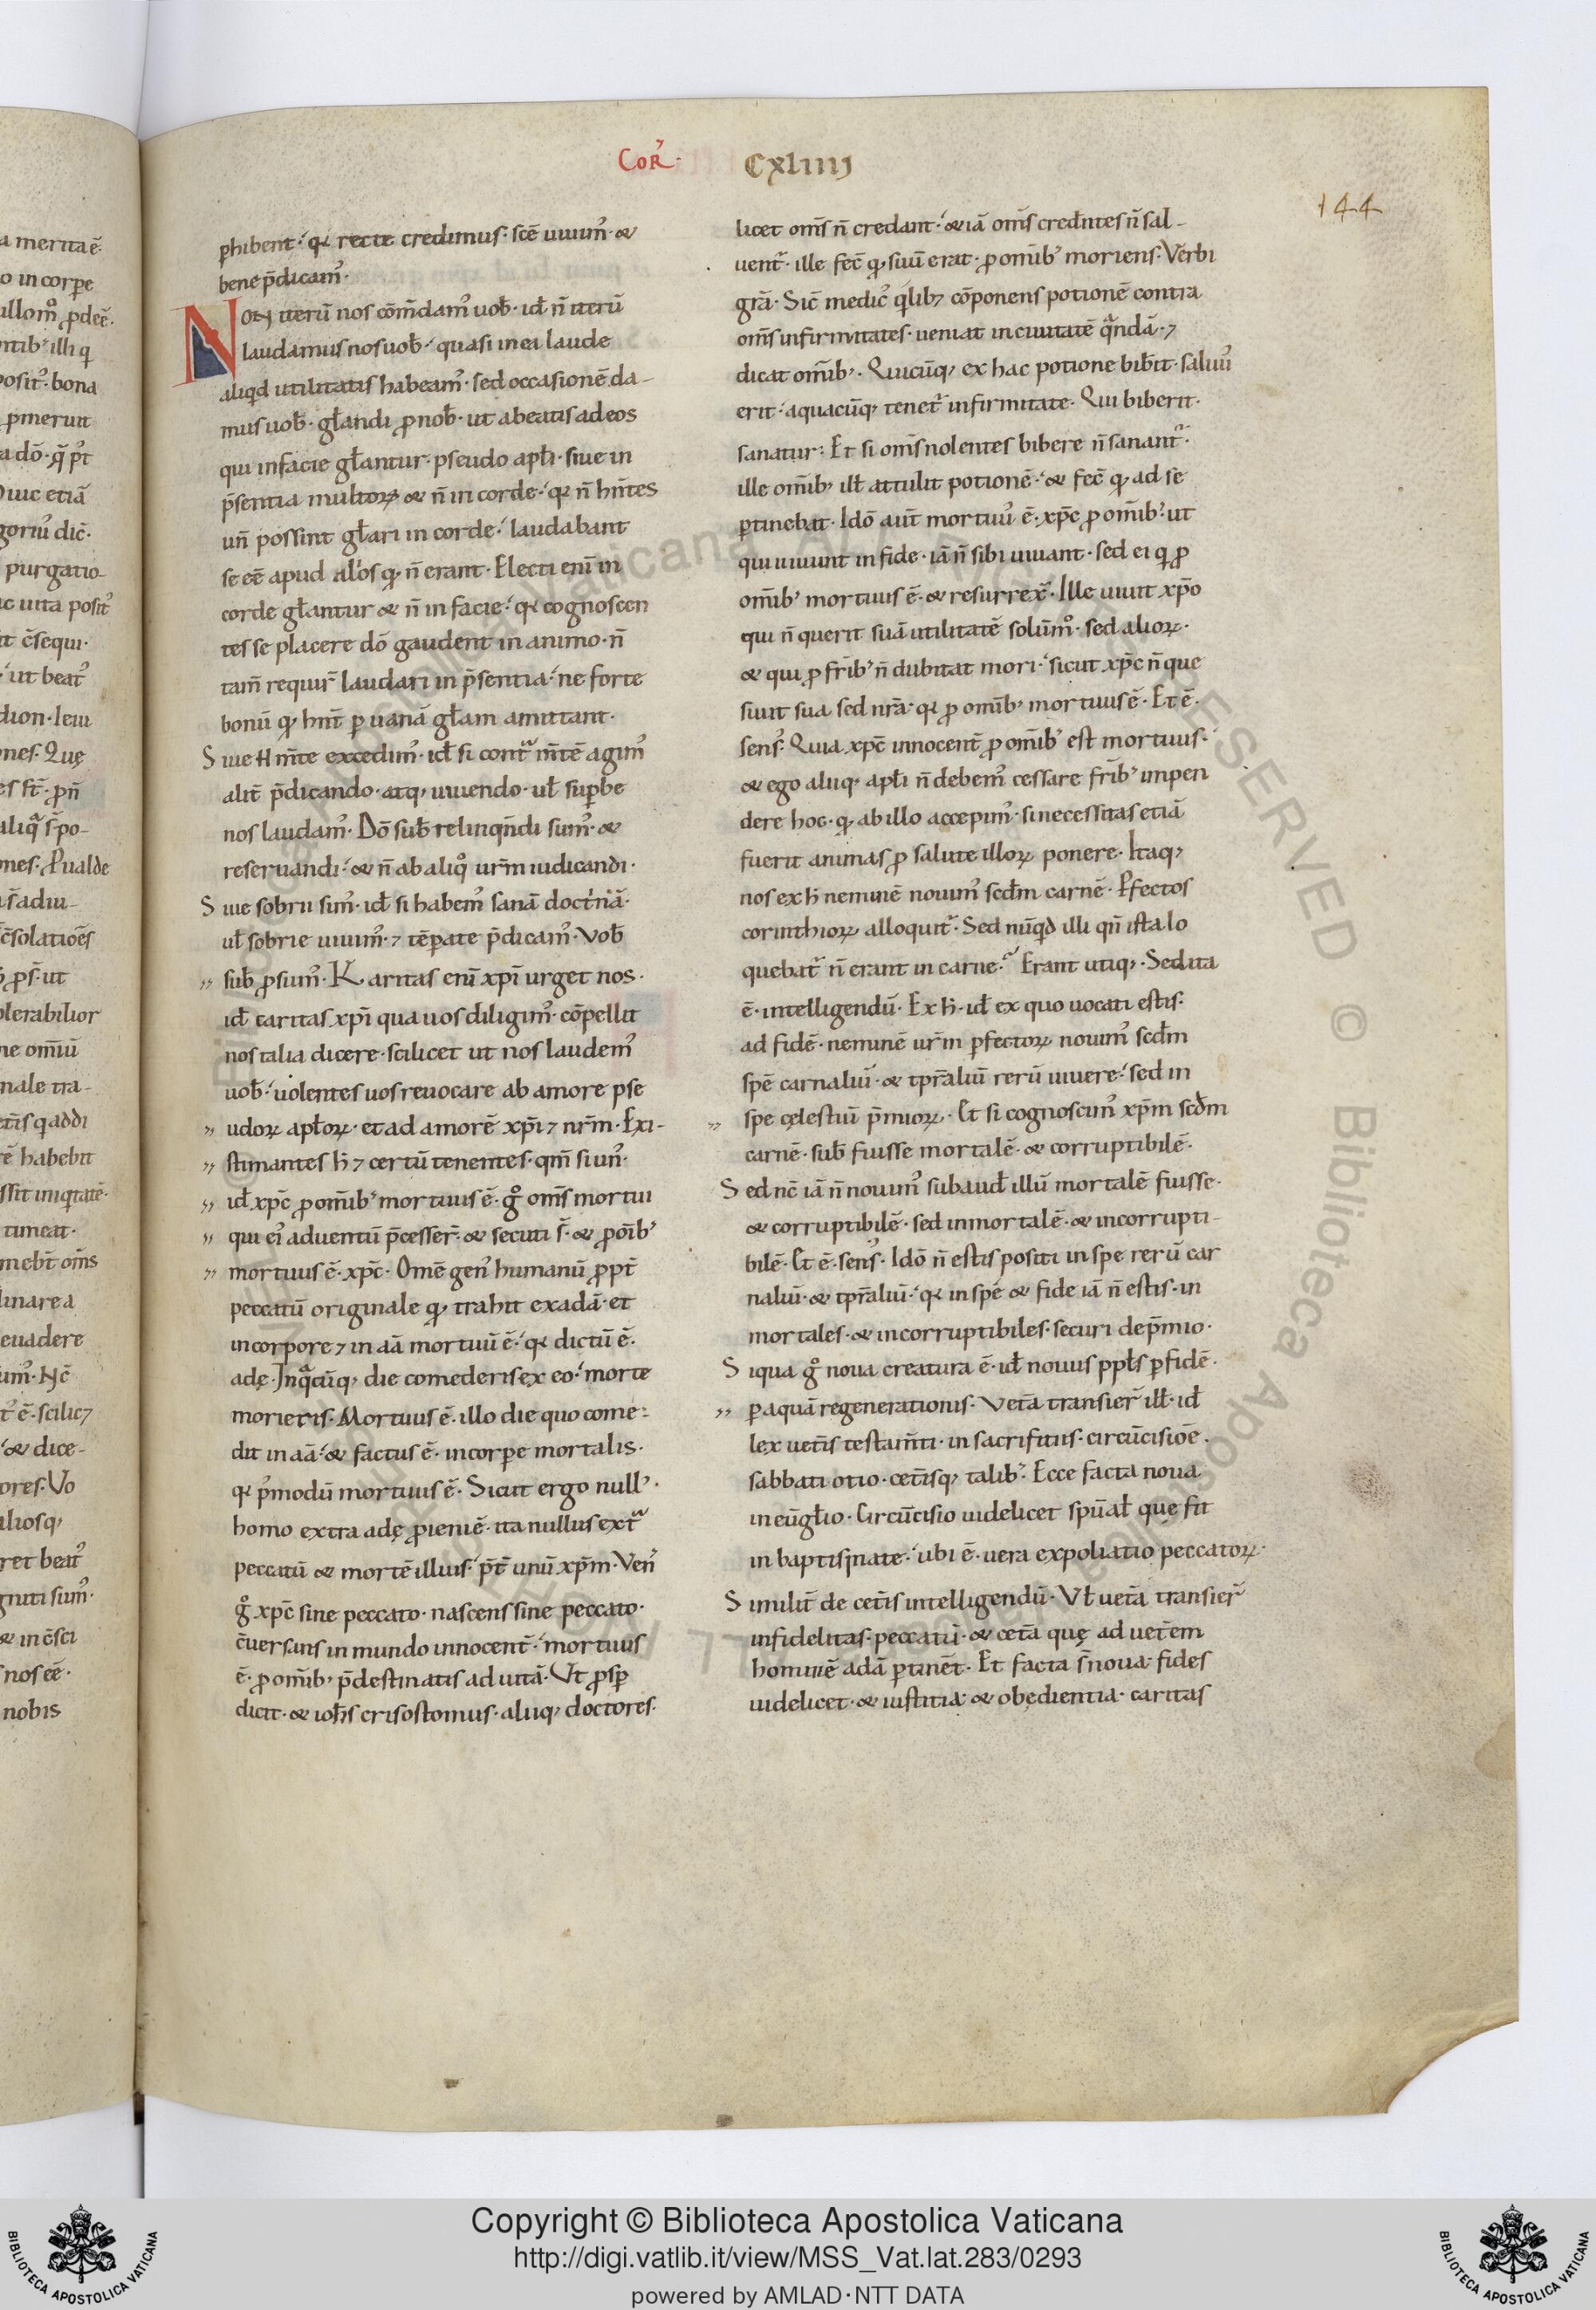 Cor̃·
CXLIIIJ
144
ꝑhibent·́ qꝛ recte credimus· scē uiuim᷒· &
bene p̄dicam᷒·
Noɴ iterū nos cōm̄dam᷒ uob̄· id̄ n̄ iterū
laudamus nos uob̄·́ quasi in ea laude
aliqd utilitatis habeam᷒· sed occasionē da-
mus uob̄· gl̄andi ꝓ nob̄· ut abeatis ad eos
qui in facie gl̄antur· pseudo apl̄i· siue in
p̄sentia multoꝝ & n̄ in corde·́ qꝛ n̄ hn̄tes
un̄ possint gl̄ari in corde·́ laudabant
se eē apud alios qꝫ n̄ erant· Electi eni̅ in
corde gl̄antur & n̄ in facie·́ qꝛ cognoscen
tes se placere dō gaudent in animo· n̄
tam̄ requir̄ laudari in p̄sentia·́ ne forte
bonū qꝫ hn̄t ꝑ uanā gl̄am amittant·
Siue H m̄te excedim᷒· id̄ si contᵃ m̄tē agim᷒
alit̄ p̄dicando· atqꝫ uiuendo· ul̄ suꝑbe
nos laudam᷒· Dō sub̄ relinqn̄di sum᷒· &
reseruandi·́ & n̄ ab aliqᵒ ur̄m iudicandi·
Siue sobrii sim᷒· id̄ si habem᷒ sanā doctⁱnā·
ul̄ sobrie uiuim᷒· ⁊ tēꝑate p̄dicam᷒· Vob̄
sub̄ ꝓsum᷒· Karitas eni̅ xpi̅ urget nos·
id̄ caritas xpi̅ qua uos diligim᷒· cōpellit
nos talia dicere· scilicet ut nos laudem᷒
uob̄·́ uolentes uos reuocare ab amore pse
udoꝝ apl̄oꝝ· et ad amorē xp̄i ⁊ nr̄m· Exi-
stimantes h̄ ⁊ certū tenentes· qm̄ si un᷒·
id̄ xpc̄ ꝓ om̄ib᷒ mortuus ē· gᵒ om̄s mortui
qui ei᷒ aduentū p̄cesser̄· & secuti s̄· & ꝓ oīb᷒
mortuus ē· xpc̄· Omē gen᷒ humanū ꝓpt̄
peccatū originale qꝫ trahit ex adā· et
in corpore ⁊ in aā mortuū ē·́ qꝛ dictū ē·
adę· Inqᵃcūqꝫ die comederis ex eo·́ morte
morieris· Mortuus ē· illo die quo come-
dit in aā·́ & factus ē· in corꝑe mortalis·
qꝛ p̄modū mortuus ē· Sicut ergo null᷒·
homo extra adę ꝓieniē· ita nullus extᵃ
peccatū & mortē illius·́ p̄t̄ unū xp̄m· Ven᷒
gᵒ xpc̄ sine peccato· nascens sine peccato·
c̄uersans in mundo innocent̄·́ mortuus
ē· ꝓ om̄ib᷒ p̄destinatis ad uitā· Vt ꝓsꝑ
dicit· & ioh̄s crisostomus· aliiqꝫ doctores·
licet om̄s n̄ credant·́ & iā om̄s cred̄ntes n̄ sal-
uent̄· ille fec̄ qꝫ suū erat· ꝓ omib᷒ moriens· Verbi
grā· Sic̄ medic᷒ qⁱlibꝫ cōponens potionē contra
om̄s infirmitates· ueniat in ciuitatē qᵃndā· ⁊
dicat omib᷒· Quicūqꝫ ex hac potione bib̄it· saluu᷒
erit·́ a quacūqꝫ tenet̄ infirmitate· Qui biberit·
sanatur· Et si om̄s nolentes bibere n̄ sanant̄·
ille omib᷒ ill̄ attulit potionē·́ & fec̄ qꝫ ad se
ꝑtinebat· Idō aut̄ mortuu᷒ ē· xpc̄ ꝓ om̄ib᷒· ut
qui uiuunt in fide· iā n̄ sibi uiuant· sed ei qⁱ ꝓ
om̄ib᷒ mortuus ē· & resurrex̄· Ille uiuit xp̄o
qui n̄ querit suā utilitatē solūm᷒· sed alioꝝ·
& qui ꝓ fr̄ib᷒ n̄ dubitat mori·́ sicut xpc̄ n̄ que
siuit sua sed nr̄a· qꝛ ꝓ omib᷒ mortuus ē· Et ē·
sens᷒· Quia xpc̄ innocent̄ ꝓ om̄ib᷒ est mortuus·́
& ego aliiqꝫ apl̄i n̄ debem᷒ cessare fr̄ib᷒ impen
dere hoc· qꝫ ab illo accepim᷒· si necessitas etiā
fuerit animas ꝓ salute illoꝝ ponere· Itaqꝫ
nos ex h̄ neminē nouim᷒ scd̄m carnē· Pfectos
corinthioꝝ alloquit̄· Sed nūqd illi qn̄ ista lo
quebat̄ n̄ erant in carne·́ Erant utiqꝫ· Sed ita
ē· intelligendū· Ex h̄· id̄ ex quo uocati estis·
ad fidē· neminē ur̄m ꝑfectoꝝ nouim᷒ scd̄m
spē carnaliū· & tpr̄aliū rerū uiuere·́ sed in
spe cęlestiū p̄mioꝝ· Et si cognoscim᷒ xp̄m scd̄m
carnē· sub̄ fuisse mortalē· & corruptibilē·
Sed nc̄ iā n̄ nouim᷒ subaud̄ illū mortalē fuisse·
& corruptibilē· sed inmortalē· & incorrupti-
bilē· Et ē· sens᷒· Idō n̄ estis positi in spe rerū car
naliū· & tpr̄aliū·́ qꝛ in spe & fide iā n̄ estis· in
mortales· & incorruptibiles· securi de p̄mio·
Siqua gᵒ noua creatura ē· id̄ nouus ppl̄s ꝑ fidē·
ꝑ aquā regenerationis· Vet̄a transier̄ ill̄· id̄
lex uet̄is testam̄ti· in sacrifitiis· circūcisiōe·
sabbati otio· cet̄isqꝫ talib᷒· Ecce facta noua
in eūgl̄io· Circūcisio uidelicet spūal̄ quę fit
in baptismate·́ ubi ē· uera expoliatio peccatoꝝ·
Similit̄ de cet̄is intelligendū· Vl̄ uet̄a transier̄
infidelitas· peccatū· & cet̄a quę ad uet̄em
hominē adā ꝑtinēt· Et facta s̄ noua· fides
uidelicet· & iustitia· & obędientia· caritas
Copyright © Biblioteca Apostolica Vaticana
http://digi.vatlib.it/view/MSS_Vat.lat.283/0293
powered by AMLAD·NTT DATA